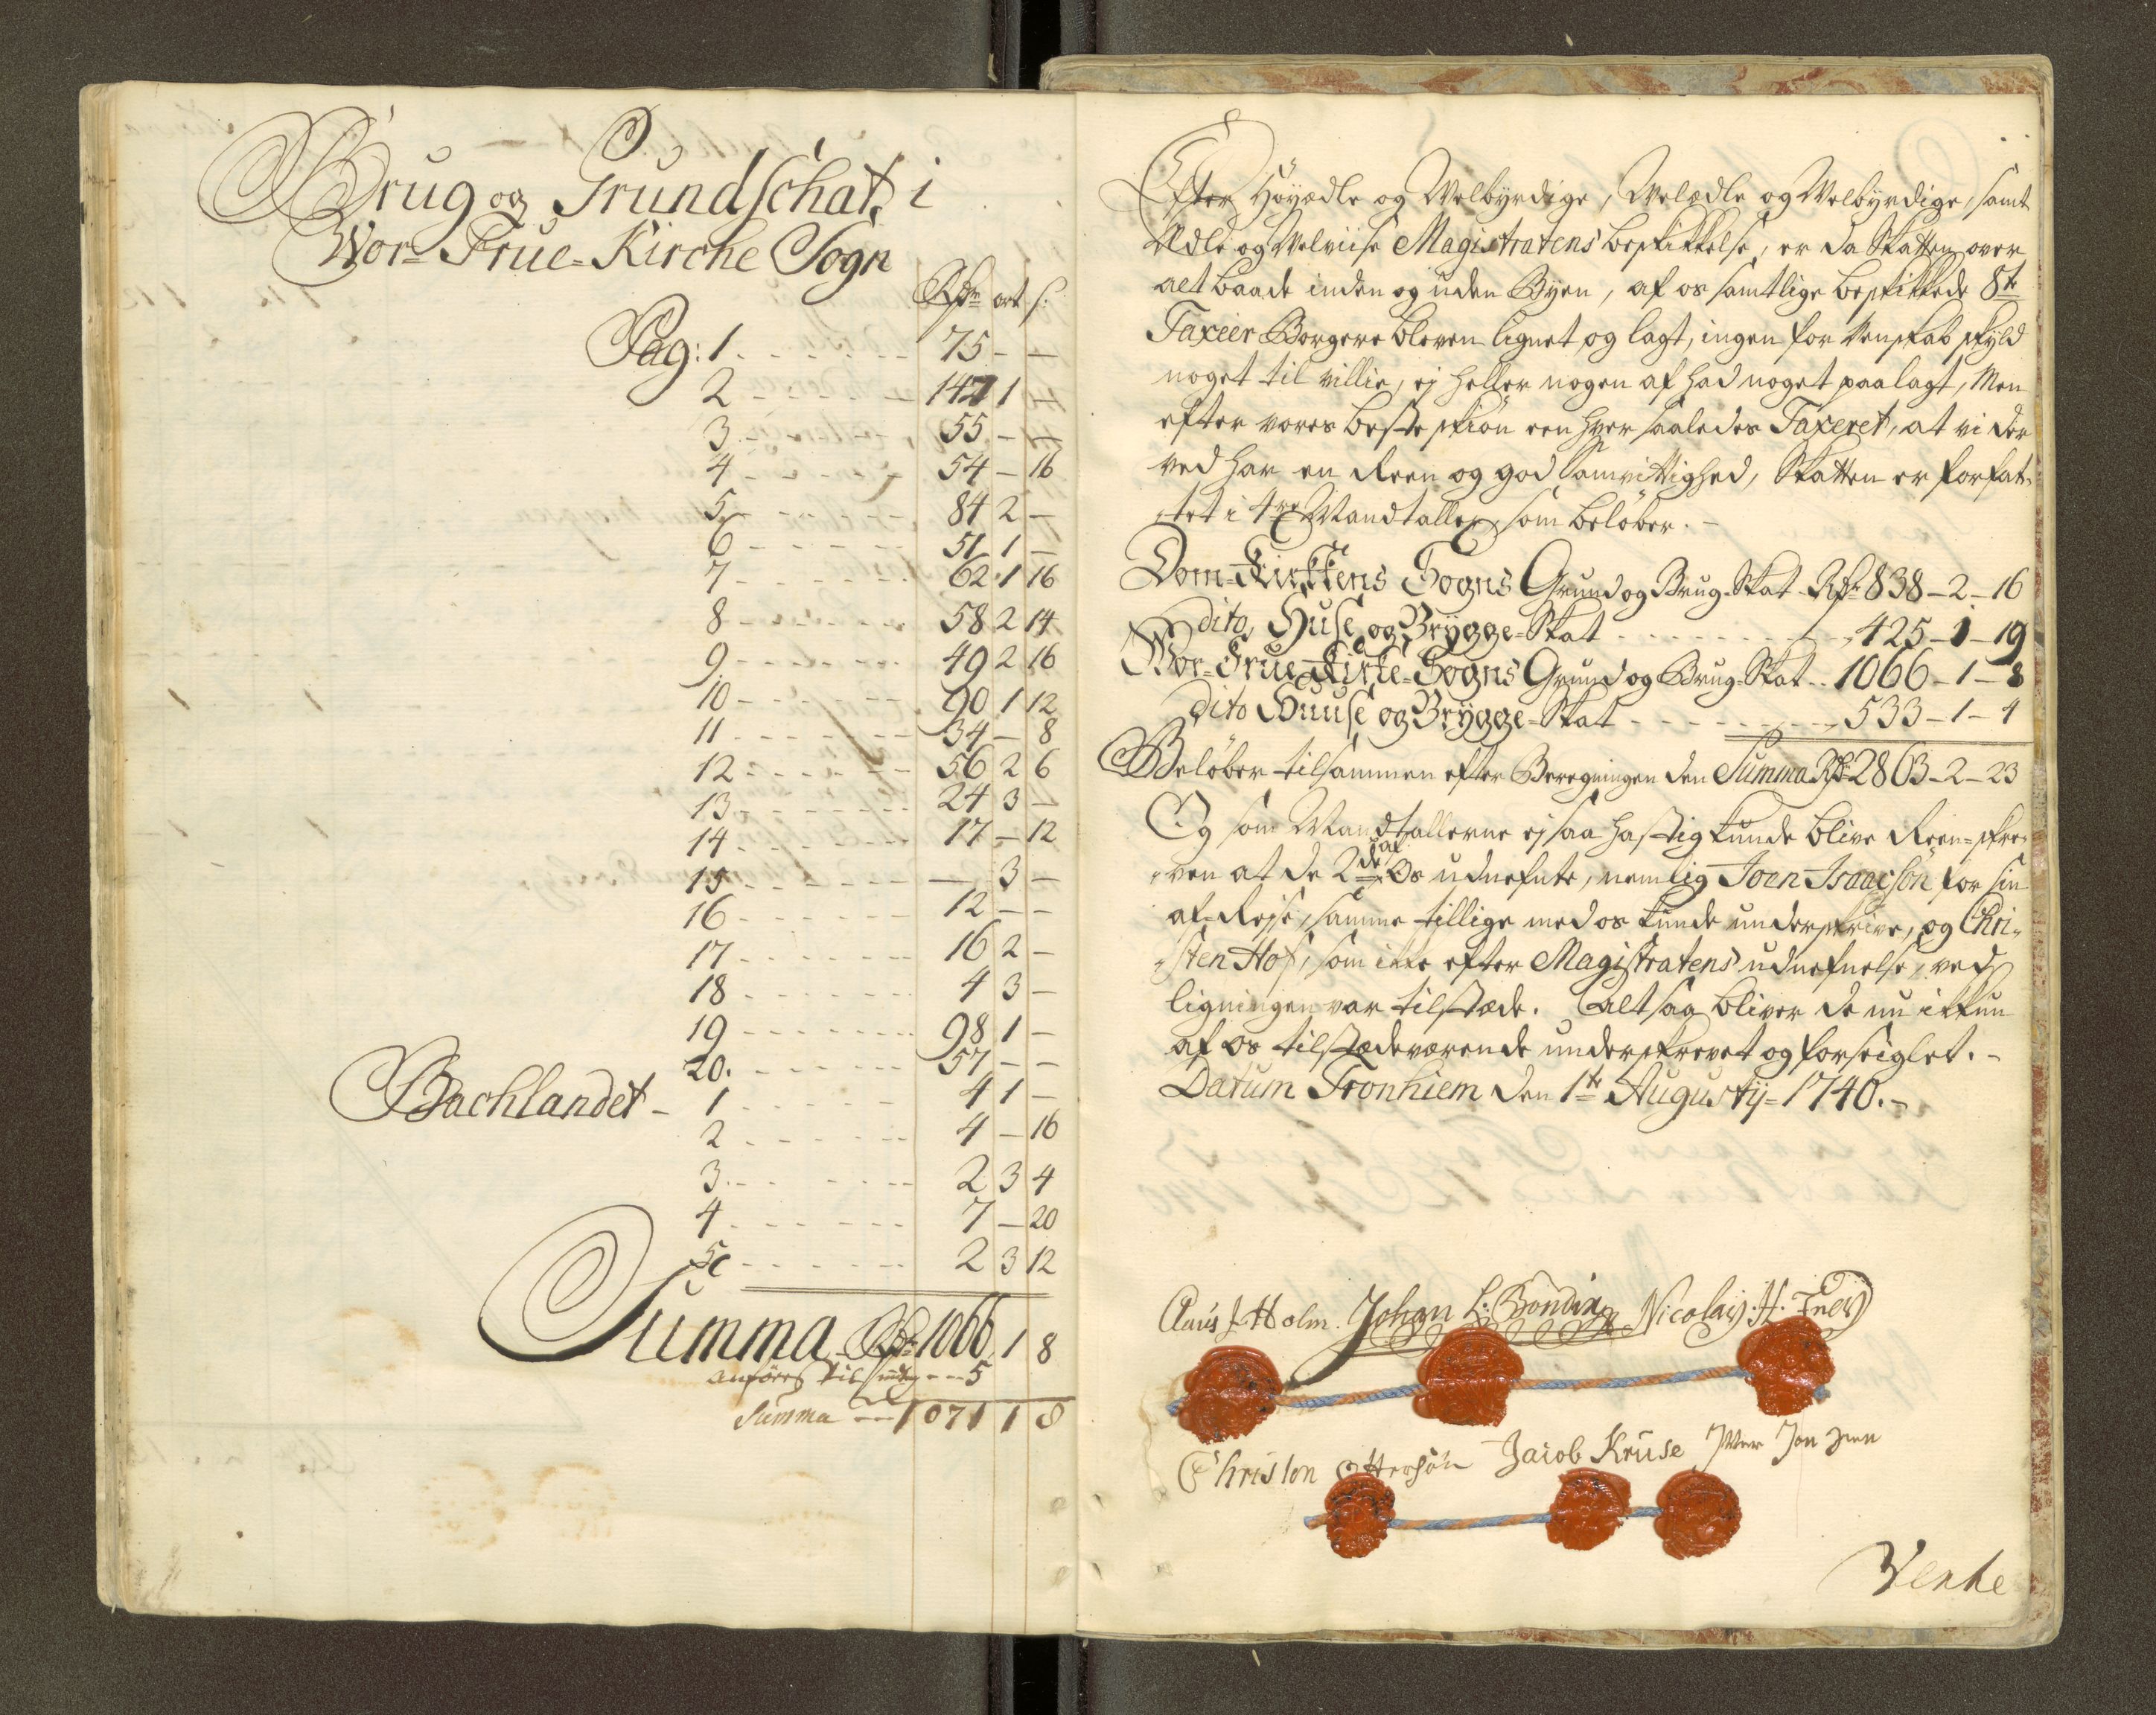 Brug og Grundschat i
Wor-Frue-Kirche Sogn
Rdr ort s:
Pag: 1 75 - -
2 147 1 -
3 55 - -
4 54 - 16
5 84 2 -
6 51 1 -
7 62 1 16
8 58 2 14
9 49 2 16
10 90 1 12
11 34 - 8
12 56 2 6
13 24 3 -
14 17 - 12
15 - 3 -
16 12 - -
17 16 2 -
18 4 3 -
19 98 1 -
20. 57 - -
Bachlandet - 1 4 1 -
2 4 - 16
3 2 3 4
4 7 - 20
5 2 3 12
Summa Rdr 1066 1 8
anføres til --- 5
Summa --- 1071 1 8
Efter Höyædle og Welbyrdige, Welædle og Welbyrdige, samt
Ædle og Velviise Magistratens beskikkelse, er da Skatten over
alt baade inden og uden Byen, af os samtlige beskikkede 8te
Taxeer Borgere bleven lignet og lagt, ingen for Venskab skyld
noget til villie, ej heller nogen af had noget paalagt, Men
efter vores beste skiön een hver saaledes Taxeret, at vi der
ved har en Reen og god Samvittighed, Skatten er forfat-
tet i 4re Mandtaller som belöber.-
Dom-Kirkkens Sogns Grund og Brug-Skat Rdr 838-2-16
dito, Huse og Brygge-Skat - - - 425-1-19
Wor-Frue-Kirke-Sogns Grund og Brug-Skat.. 1066-1-8
dito Huuse og Brygge-Skat - - - 533-1-4
Belöber tilsammen efter Beregningen den Summa Rdr 2863-2-23
Og som Mandtallerne ej saa hastig kunde blive Reen-skre-
ven at de 2de af Os udnefnte, nemlig Joen Isaacsön for sin
af-Rejse, samme tillige med os kunde underskrive, og Chri-
sten Hof, som ikke efter Magistratens udnefnelse, ved
ligningen var tilstæde. Altsaa bliver de nu ikkun
af os tilstædeværende underskrevet og forseiglet.-
Datum Tronhiem den 1te Augustij-1740.-
Claus J Holm. Johan L: Bonding Nicolaij: H:
Christen Ottersön Jacob Kruse Iver Jonsen